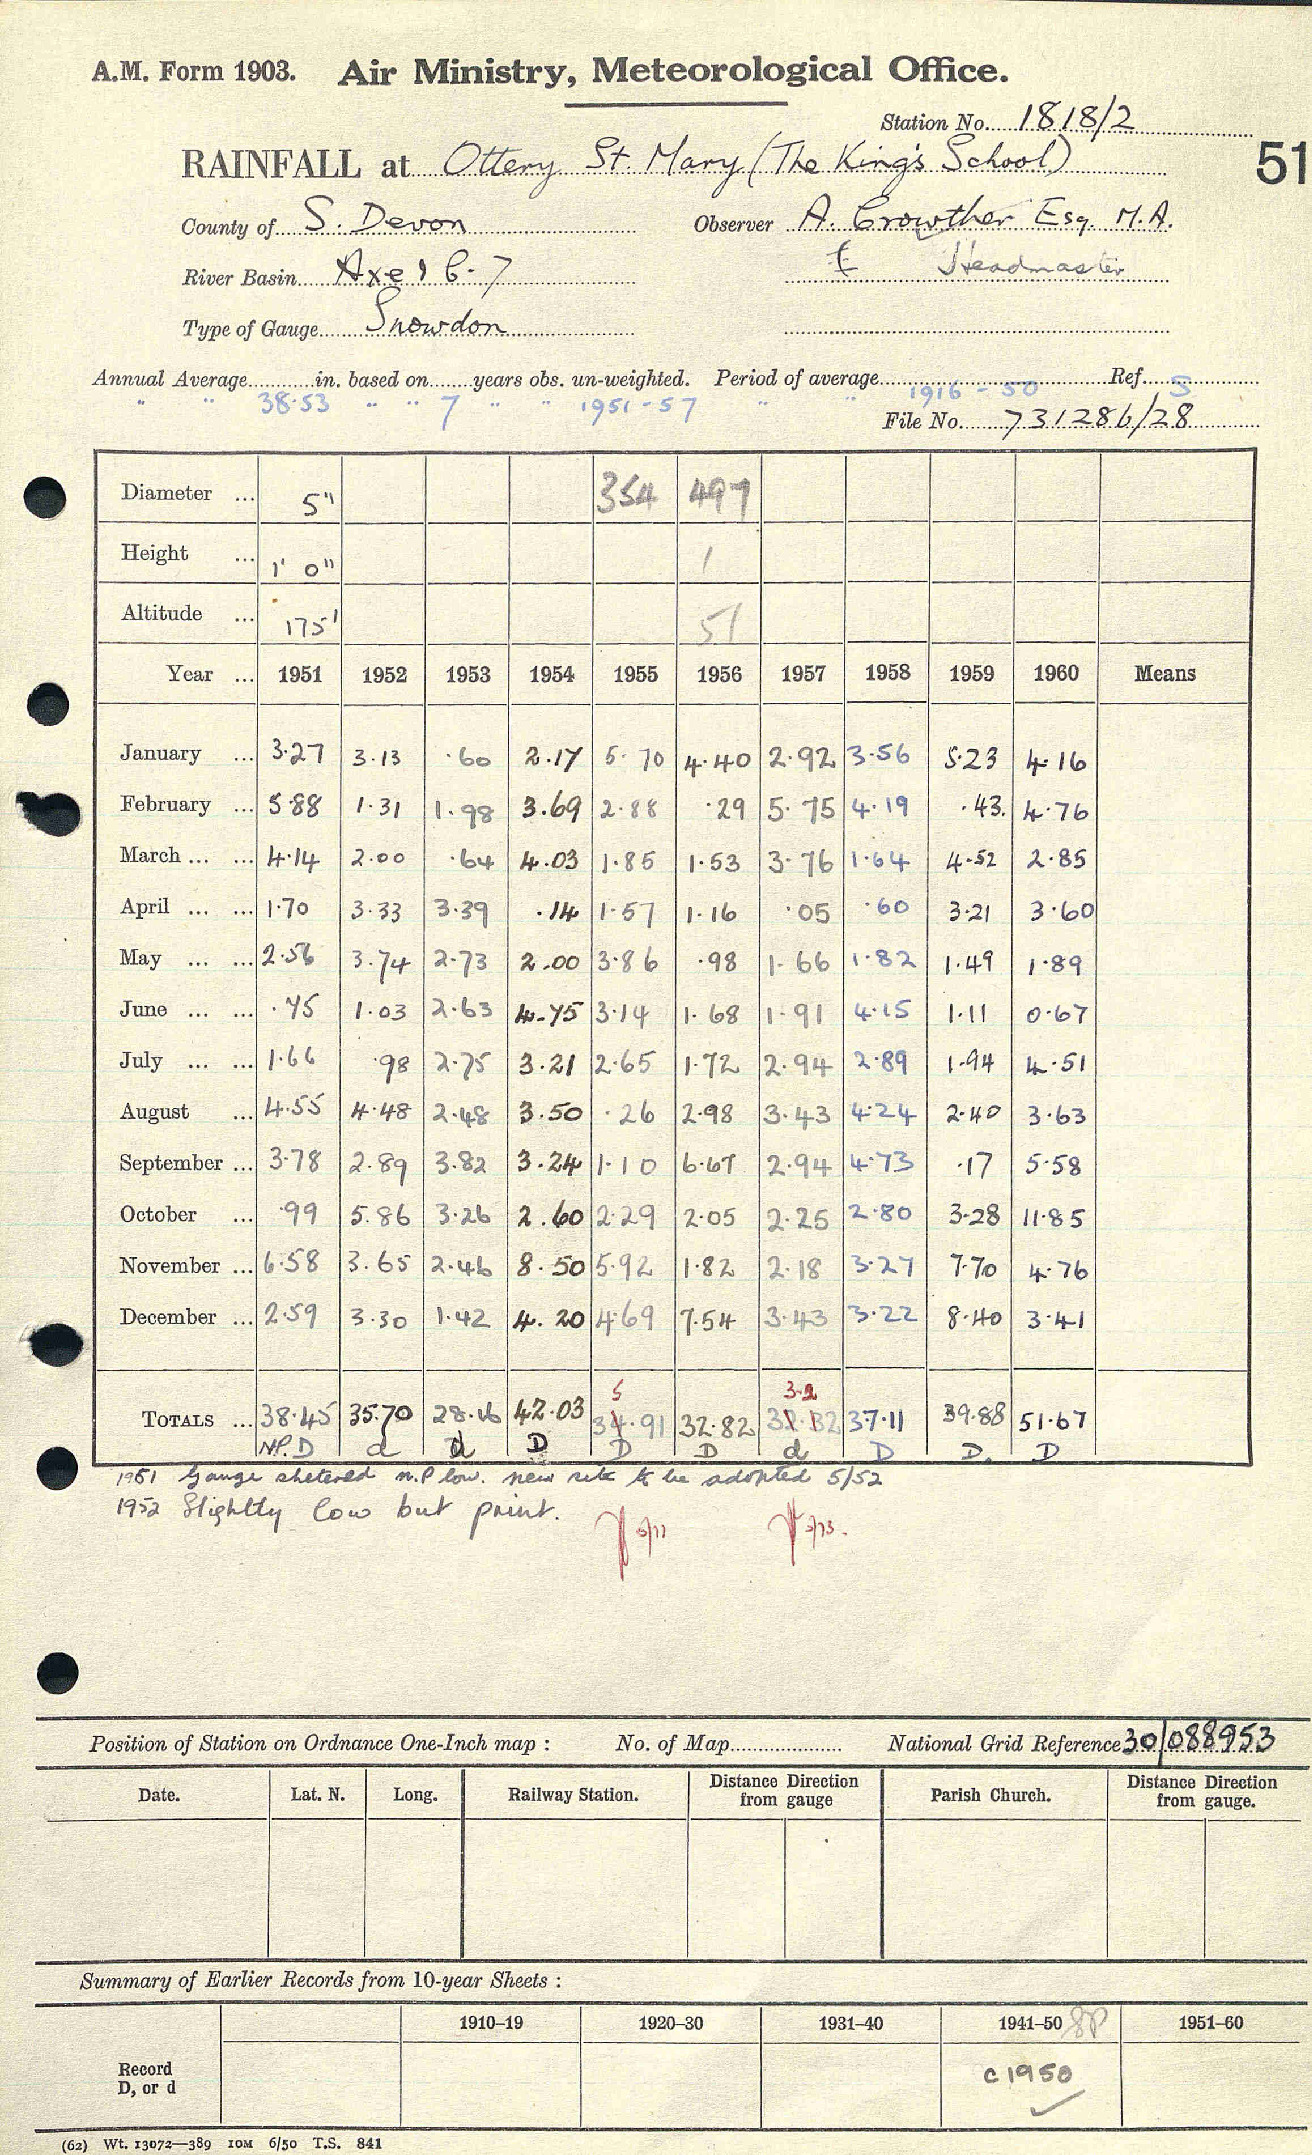 A.M. Form 1903. Air Ministry, Meteorological Office.
Station No. 1818/2
51
RAINFALL at Ottery St. Mary (The King's School)
County of S. Devon Observer A. Crowther Esq. M.A.
River Basin Axe Headmaster
Type of Gauge Snowdon
Annual Average in. based on years obs. un-weighted. Period of average 1916-50 Ref. S
" " 38.53 " " 7 " " 1951-57 " "
File No. 731286/28
Diameter ... 5" 354 497
Height ... 1' 0" 1
Altitude ... 175' 51
Year ... 1951 1952 1953 1954 1955 1956 1957 1958 1959 1960 Means
January ... 3.27 3.13 .60 2.17 5.70 4.40 2.92 3.56 5.23 4.16
February ... 5.88 1.31 1.98 3.69 2.88 .29 5.75 4.19 .43 4.76
March ... ... 4.14 2.00 .64 4.03 1.85 1.53 3.76 1.64 4.52 2.85
April ... ... 1.70 3.33 3.39 .14 1.57 1.16 .05 .60 3.21 3.60
May ... ... 2.56 3.74 2.73 2.00 3.86 .98 1.66 1.82 1.49 1.89
June ... ... .75 1.03 2.63 4.75 3.14 1.68 1.91 4.15 1.11 0.67
July ... ... 1.66 .98 2.75 3.21 2.65 1.72 2.94 2.89 1.94 4.51
August ... 4.55 4.48 2.48 3.50 .26 2.98 3.43 4.24 2.40 3.63
September ... 3.78 2.89 3.82 3.24 1.10 6.67 2.94 4.73 .17 5.58
October ... .99 5.86 3.26 2.60 2.29 2.05 2.25 2.80 3.28 11.85
November ... 6.58 3.65 2.46 8.50 5.92 1.82 2.18 3.27 7.70 4.76
December ... 2.59 3.30 1.42 4.20 4.69 7.54 3.43 3.22 8.40 3.41
5 3.2
TOTALS ... 38.45 35.70 28.16 42.03 34.91 32.82 32.32 37.11 39.88 51.67
NP. D d d D D D d D D. D
1951 Gauge sheltered n.P low. new site to be adopted 5/52
1952 Slightly low but print.
Position of Station on Ordnance One-Inch map : No. of Map National Grid Reference 30/088953
Date. Lat. N. Long. Railway Station. Distance Direction from gauge Parish Church. Distance Direction from gauge.
Summary of Earlier Records from 10-year Sheets :
1910–19 1920–30 1931–40 1941–50 1951–60
Record
D, or d
c 1950
(62) Wt. 13072—389 10M 6/50 T.S. 841